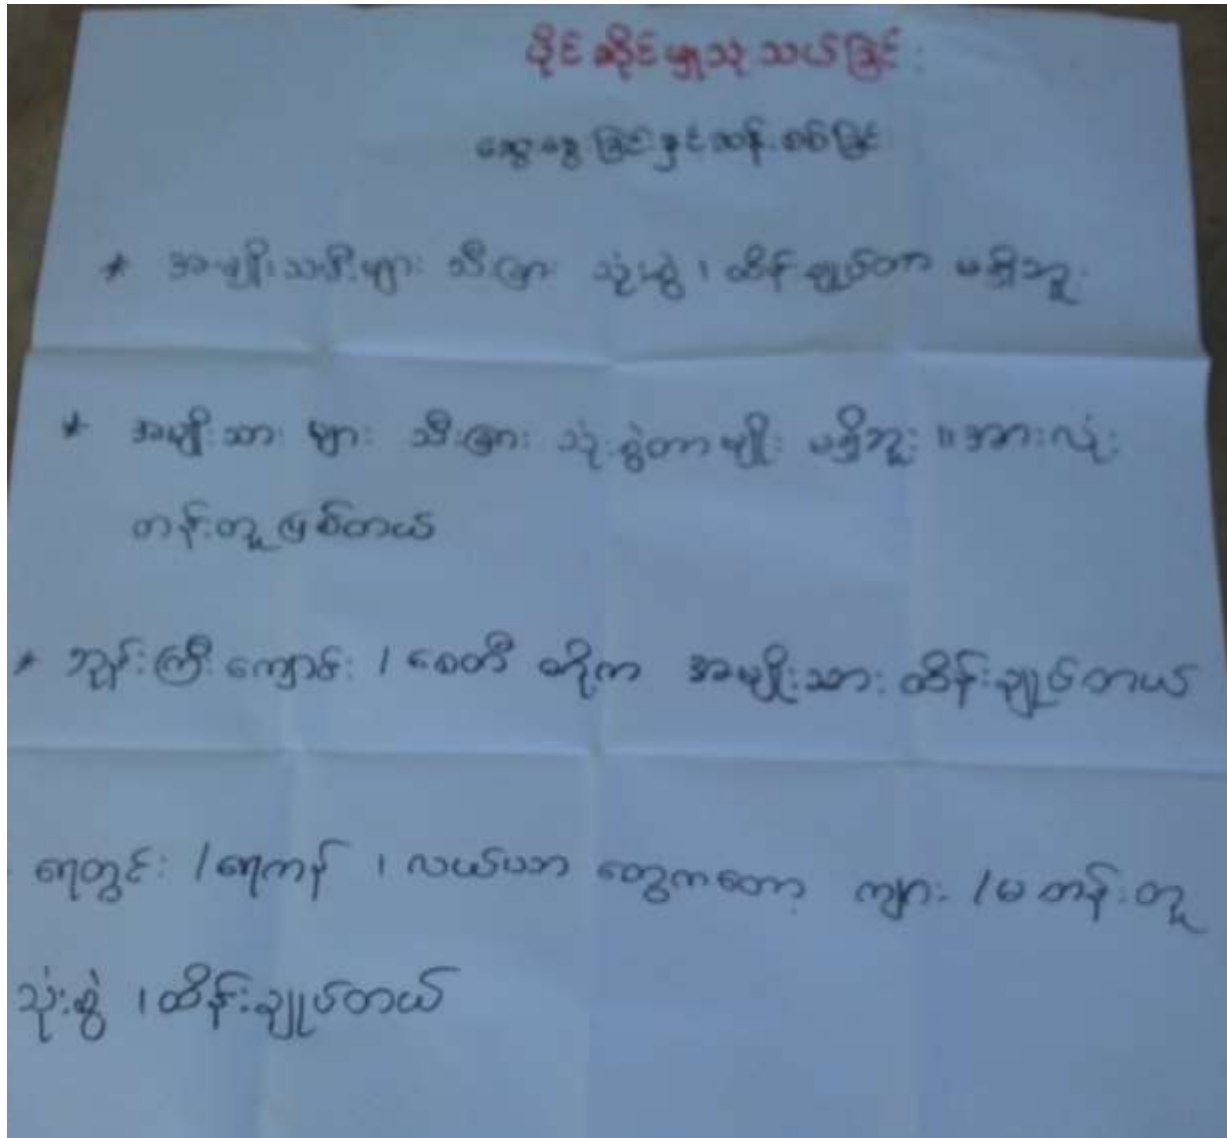 ပိုင်ဆိုင်မှုသုံးသပ်ခြင်း
ဆွေးနွေးခြင်းနှင့်ဆန်းစစ်ခြင်း
* အမျိုးသမီးများ သီးခြား သုံးစွဲ ၊ ထိန်းချုပ်တာ မရှိဘူး
* အမျိုးသား များ သီးခြား သုံးစွဲတာမျိုး မရှိဘူး ။အားလုံး
တန်းတူဖြစ်တယ်
* ဘုန်းကြီးကျောင်း / စေတီ တို့က အမျိုးသား ထိန်းချုပ်တယ်
ရေတွင်း /ရေကန် ၊ လယ်ယာ တွေကတော့ ကျား /မ တန်းတူ
သုံးစွဲ ၊ထိန်းချုပ်တယ်